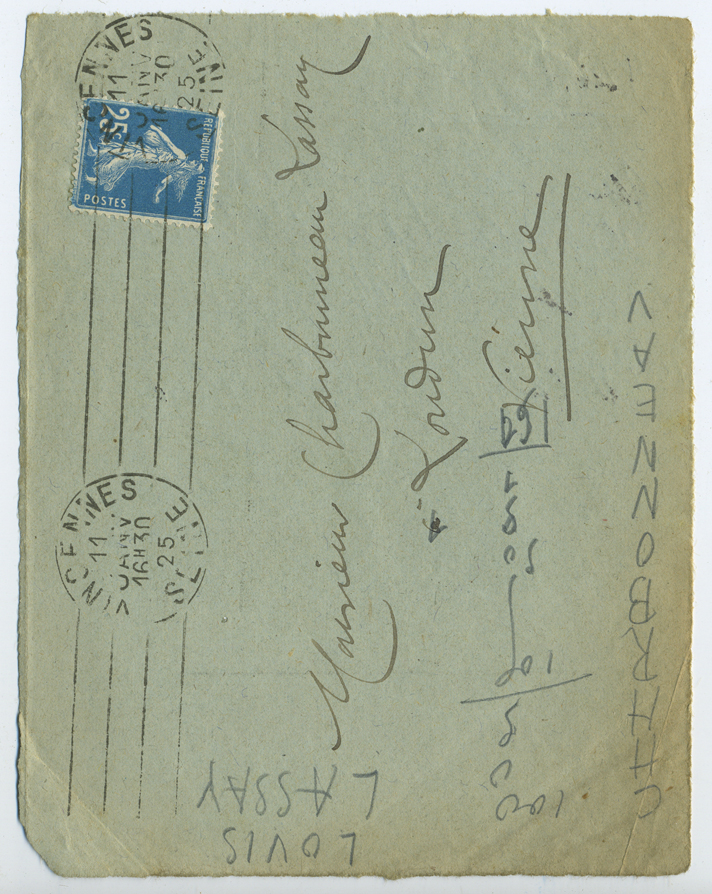 VINCENNES
11
JANV
16H30
25
SEINE
VINCENNES
11
JANV
16H30
25
SEINE
REPUBLIQUE FRANÇAISE
25c
POSTES
Monsieur Charbonneau Lassay
à Loudun
Vienne
CHARBONNEAV
LOVIS
LASSAY